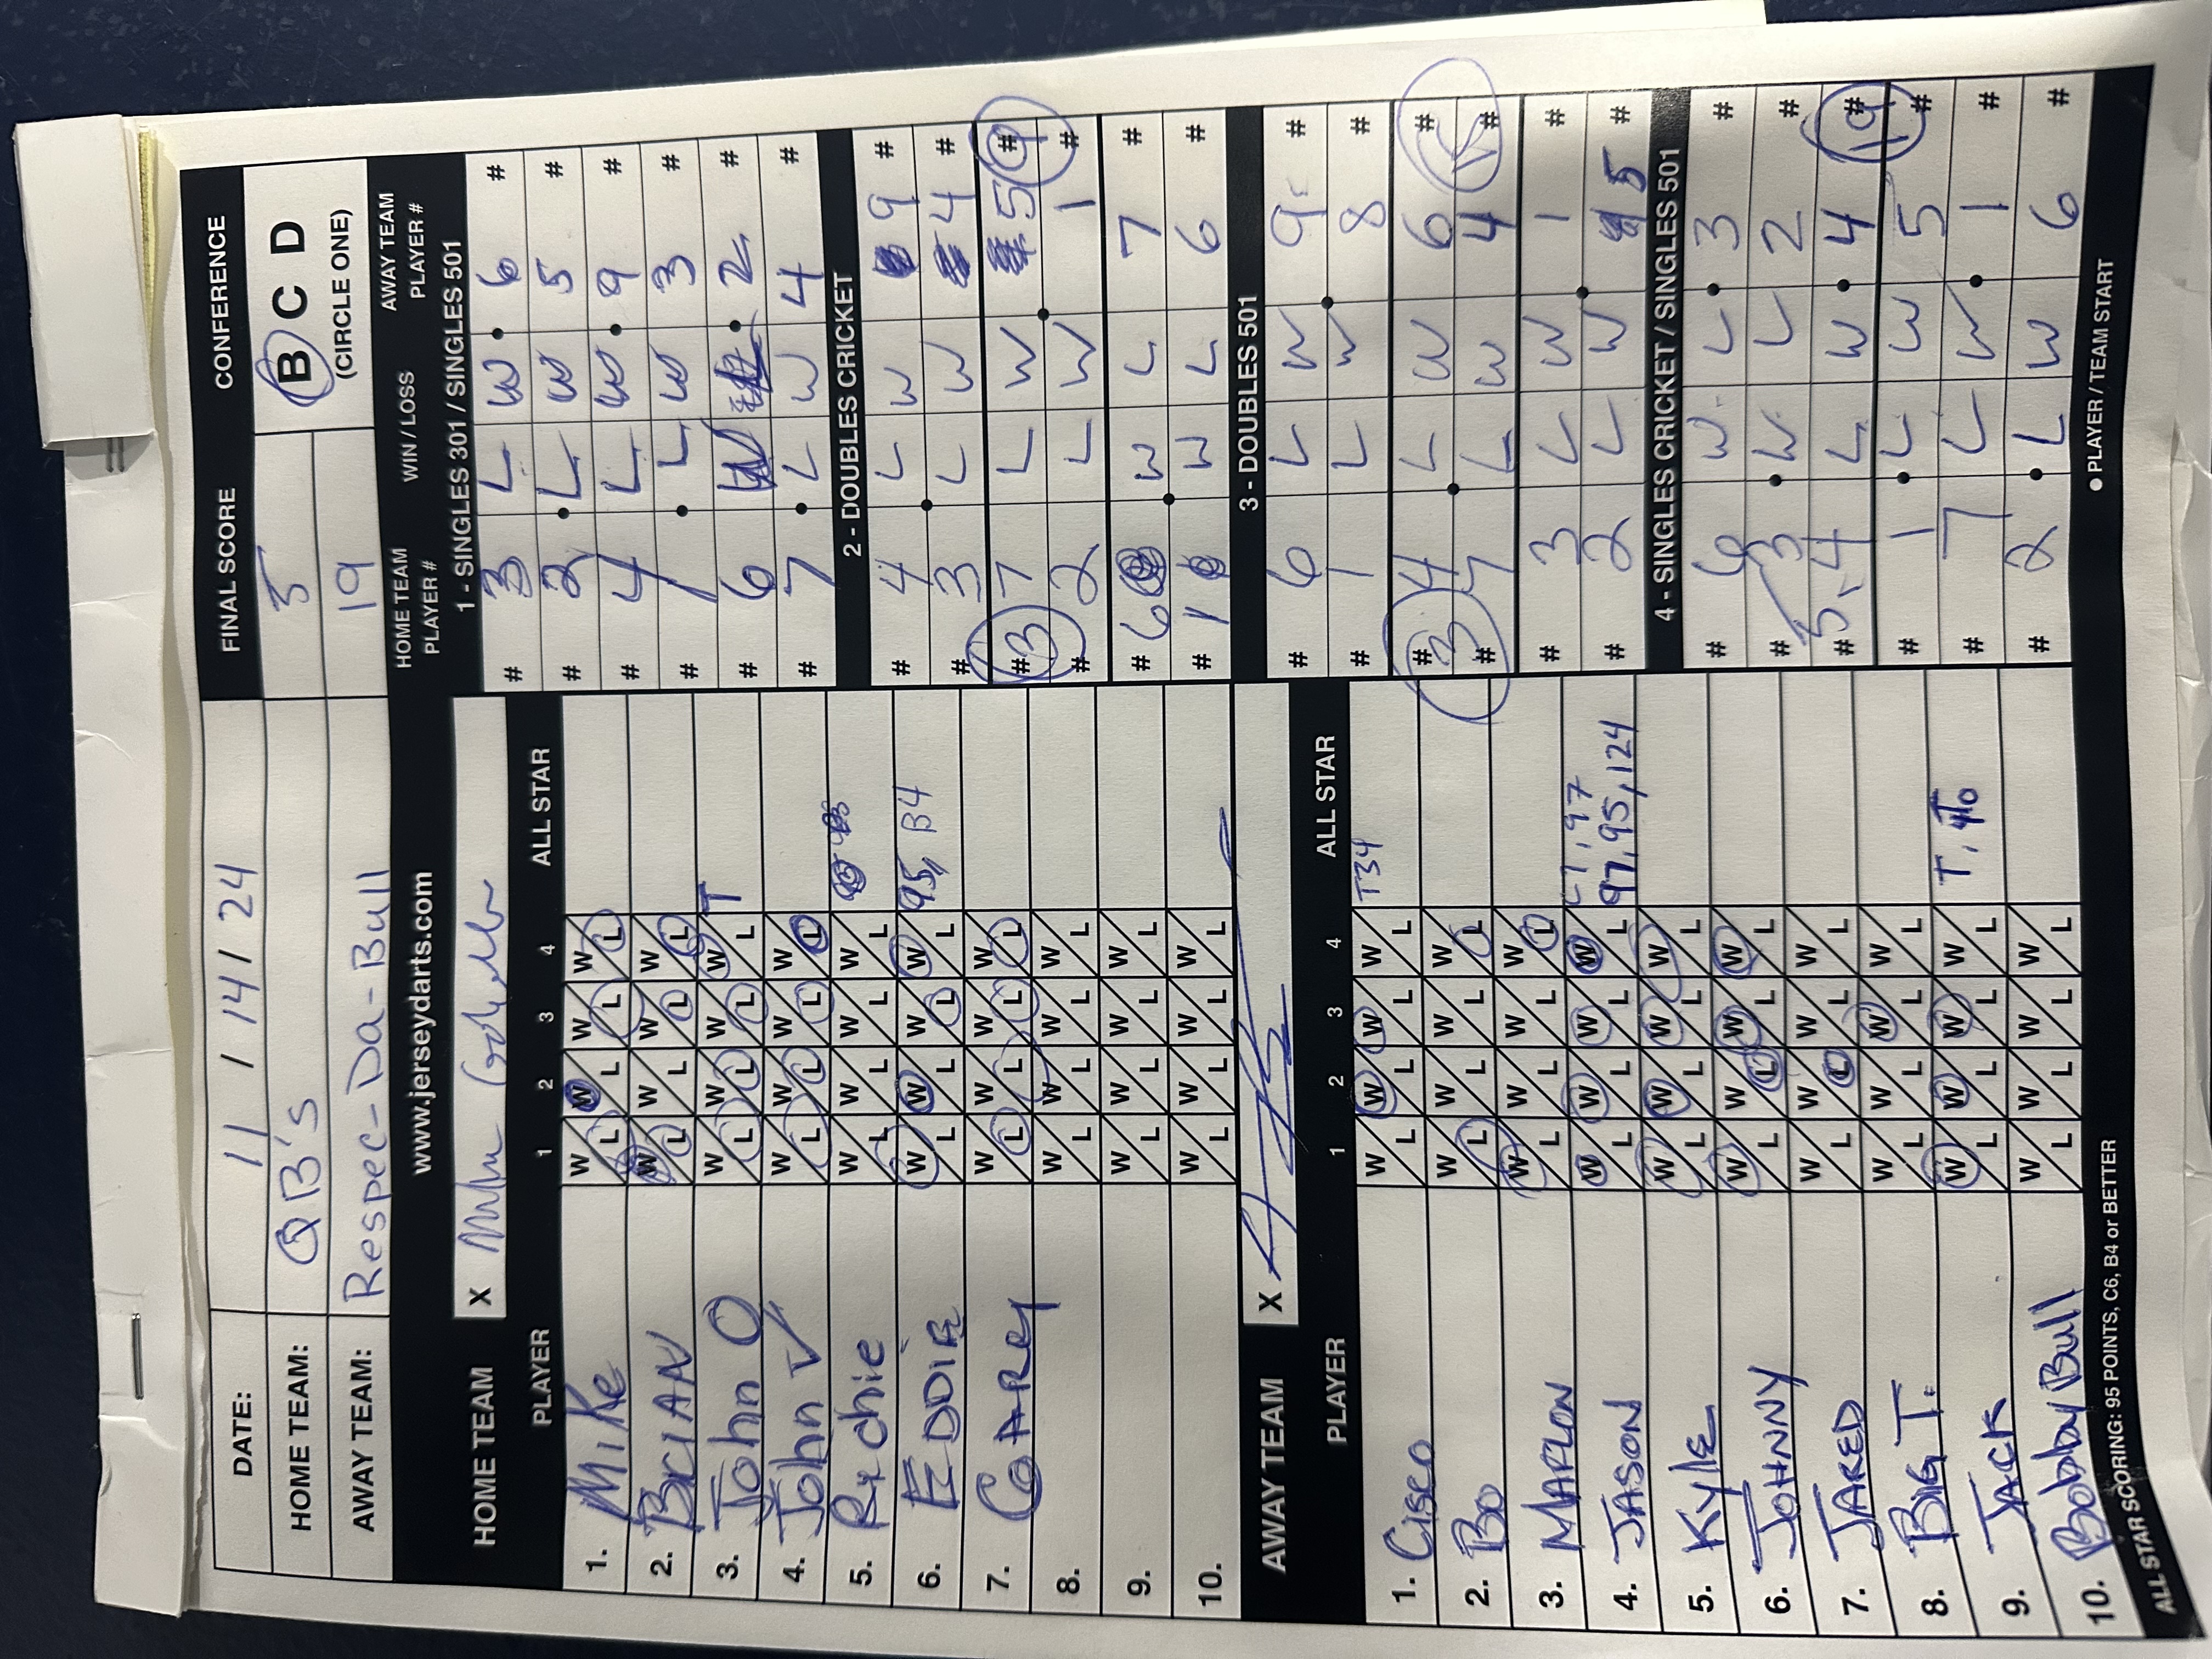 DATE: 11 / 14 / 24 FINAL SCORE CONFERENCE
HOME TEAM: QB's 5 B C D
AWAY TEAM: Respec-Da-Bull 19 (CIRCLE ONE)
www.jerseydarts.com
HOME TEAM X
PLAYER 1 2 3 4 ALL STAR
1. Mike W L W L W L W L
2. BRIAN W L W L W L W L
3. John O W L W L W L W L T
4. John V W L W L W L W L
5. Richie W L W L W L W L
6. EDDIE W L W L W L W L 95, B4
7. GARY W L W L W L W L
8. W L W L W L W L
9. W L W L W L W L
10. W L W L W L W L
AWAY TEAM X
PLAYER 1 2 3 4 ALL STAR
1. Cisco W L W L W L W L T34
2. Bo W L W L W L W L
3. MARLON W L W L W L W L
4. JASON W L W L W L W L 97
97, 95, 124
5. KYLE W L W L W L W L
6. JOHNNY W L W L W L W L
7. JARED W L W L W L W L
8. BIG T. W L W L W L W L
9. JACK W L W L W L W L T,
10. Bobby Bull W L W L W L W L
ALL STAR SCORING: 95 POINTS, C6, B4 or BETTER
HOME TEAM PLAYER # WIN / LOSS AWAY TEAM PLAYER #
1 - SINGLES 301 / SINGLES 501
# 3 L W 6 #
# 2 L W 5 #
# 4 L W 9 #
# 1 L W 3 #
# 6 W 2 #
# 7 L W 4 #
2 - DOUBLES CRICKET
# 4 L W 9 #
# 3 L W 4 #
# 7 L W 5 #
3 9
# 2 L W 1 #
# 6 W L 7 #
# 1 W L 6 #
3 - DOUBLES 501
# 6 L W 9 #
# 1 L W 8 #
# 4 L W 6 #
3 15
# 7 L W 4 #
# 3 L W 1 #
# 2 L W 5 #
4 - SINGLES CRICKET / SINGLES 501
# 6 W L 3 #
# 3 W L 2 #
# 4 L W 4 #
5 19
# 1 L W 5 #
# 7 L W 1 #
# 2 L W 6 #
● PLAYER / TEAM START